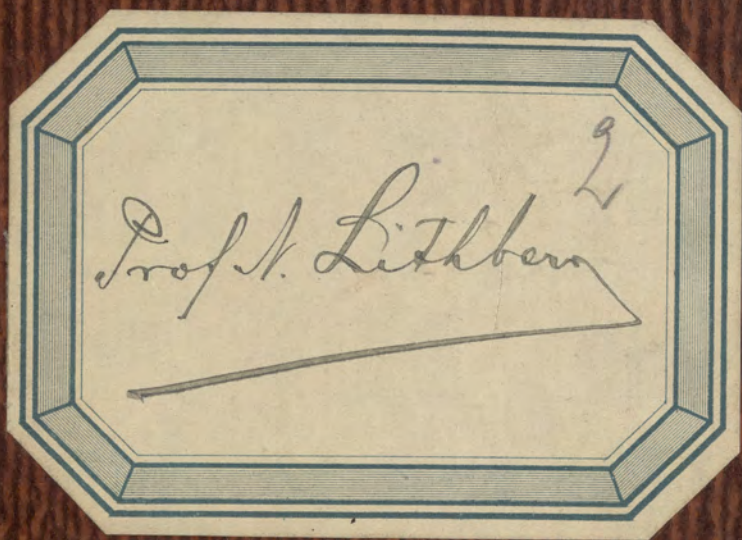 2
Prof N. Lithberg